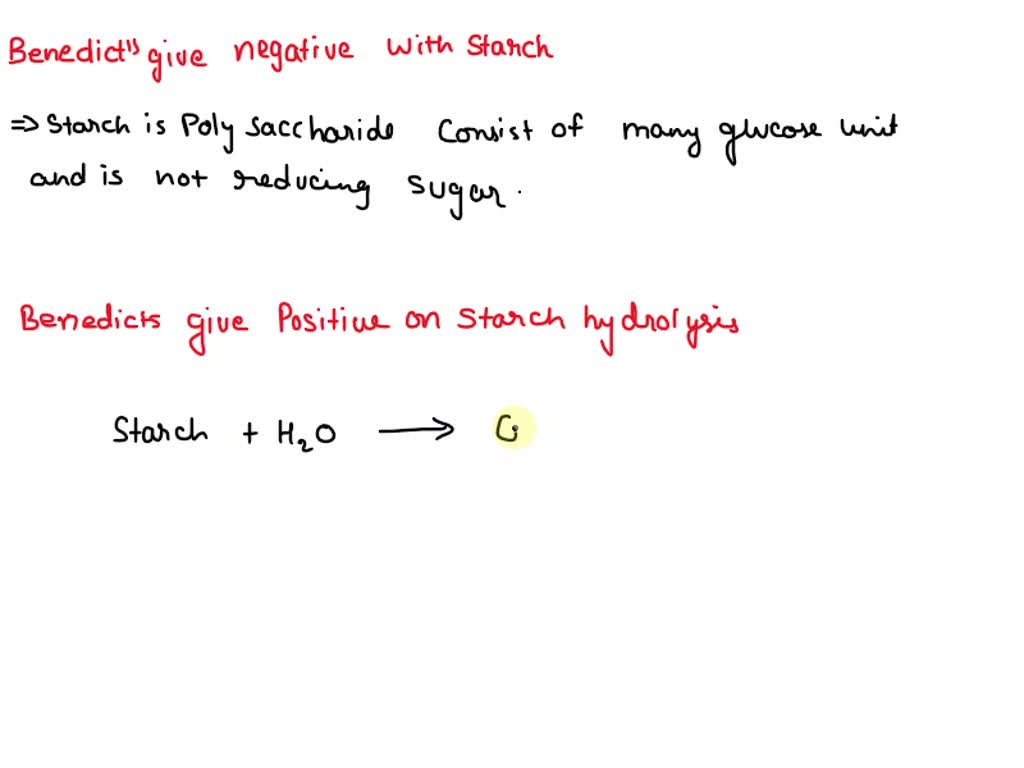 Benedict's give negative with Starch
⇒ Starch is Poly saccharide Consist of many glucose unit
and is not reducing sugar.
Benedicts give Positive on Starch hydrolysis
Starch + H₂O ⟶ G